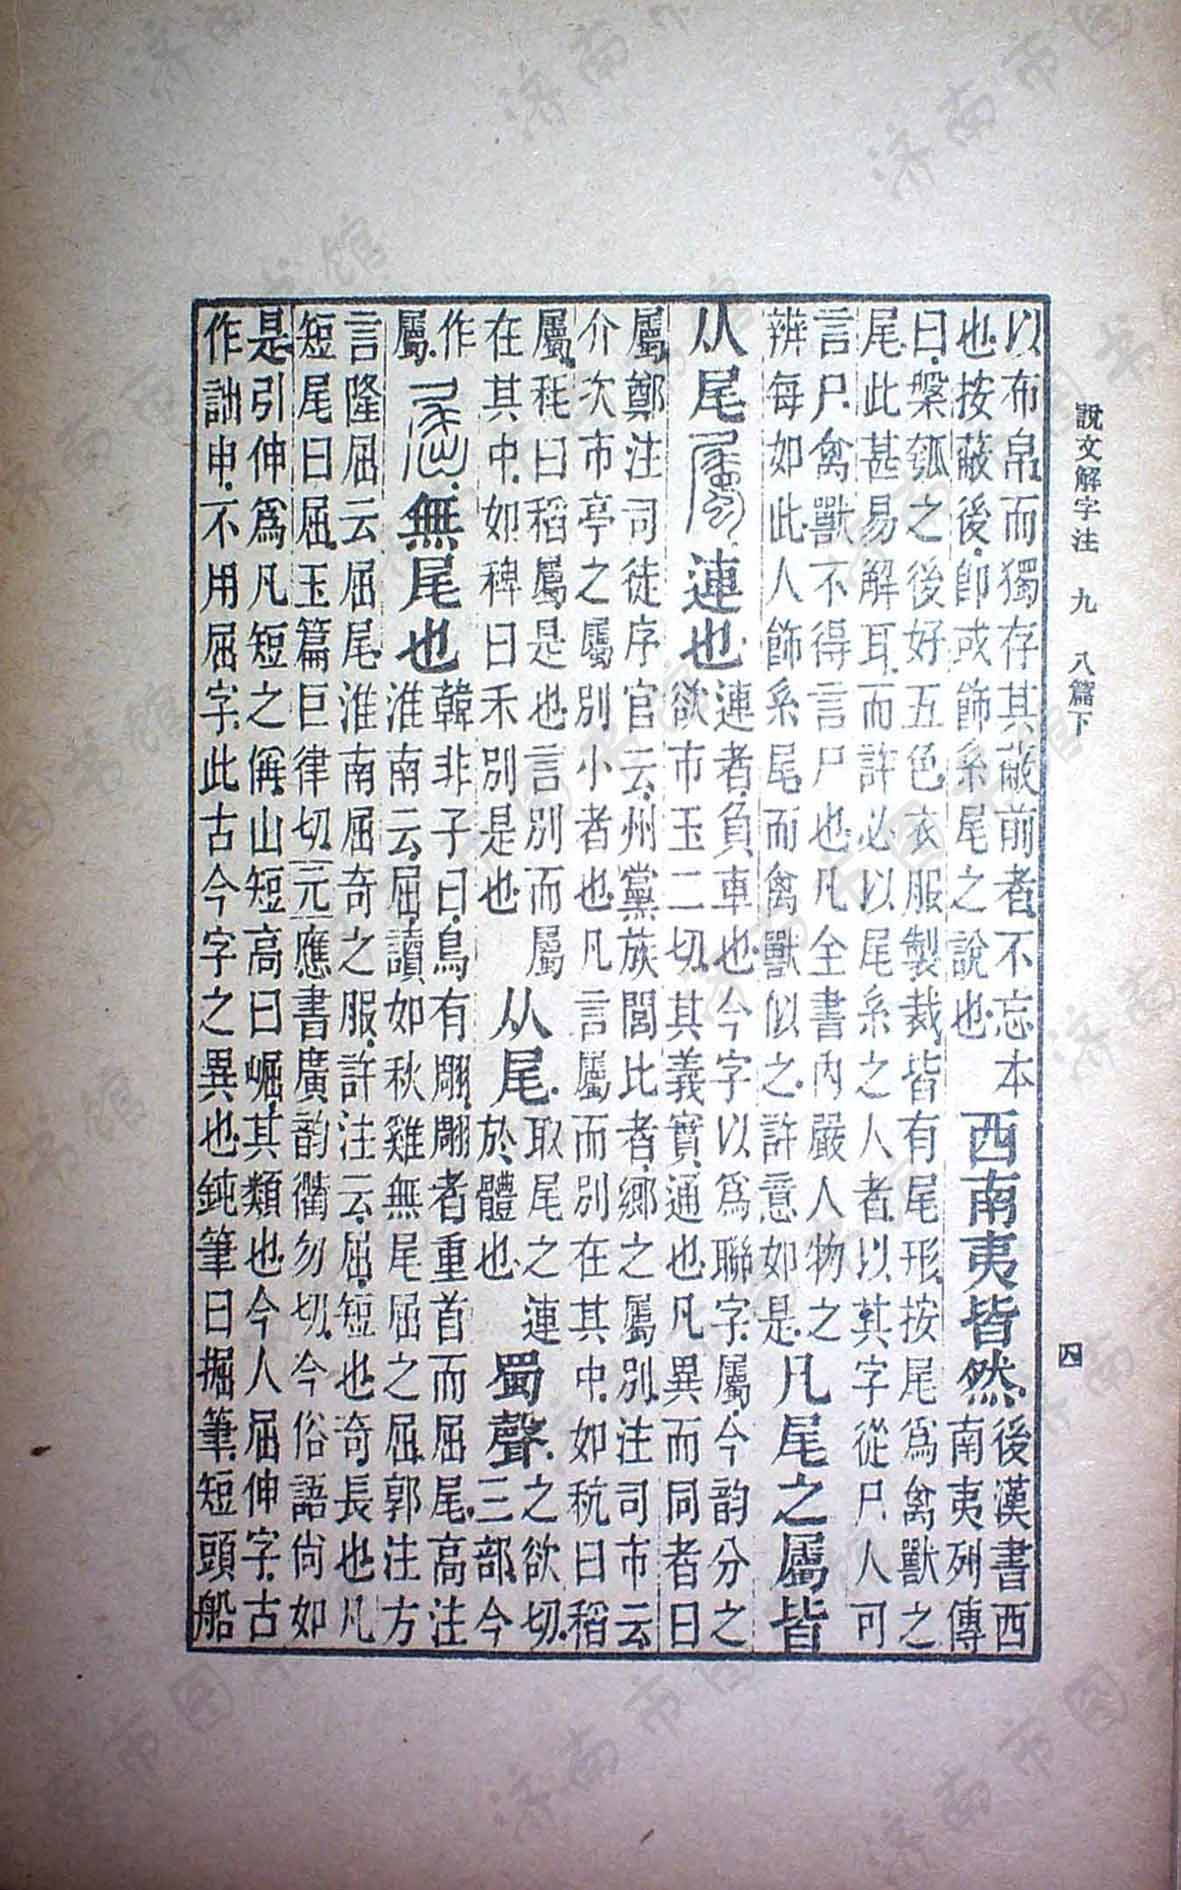 說文解字注 九 八篇下
四
以布帛而獨存其蔽前者不忘本
也按蔽後卽或飾系尾之說也
西南夷皆然
後漢書西
南夷列傳
曰槃瓠之後好五色衣服製裁皆有尾形按尾爲禽獸之
尾此甚易解耳而許必以尾系之人者以其字從尸人可
言尸禽獸不得言尸也凡全書內嚴人物之
辨每如此人飾系尾而禽獸似之許意如是
凡尾之屬皆
从尾屬連也
連者負車也今字以爲聯字屬今韵分之
欲市玉二切其義實通也凡異而同者曰
屬鄭注司徒序官云州黨族閭比者鄉之屬別注司市云
介次市亭之屬別小者也凡言屬而別在其中如秔曰稻
屬秏曰稻屬是也言別而屬
在其中如稗曰禾別是也
从尾
取尾之連
於體也
蜀聲
之欲切
三部今
作
屬
屈無尾也
韓非子曰鳥有翢翢者重首而屈尾高注
淮南云屈讀如秋雞無尾屈之屈郭注方
言隆屈云屈尾淮南屈奇之服許注云屈短也奇長也凡
短尾曰屈玉篇巨律切元應書廣韵衢勿切今俗語尚如
是引伸爲凡短之偁山短高曰崛其類也今人屈伸字古
作詘申不用屈字此古今字之異也鈍筆曰掘筆短頭船
济南市图书馆